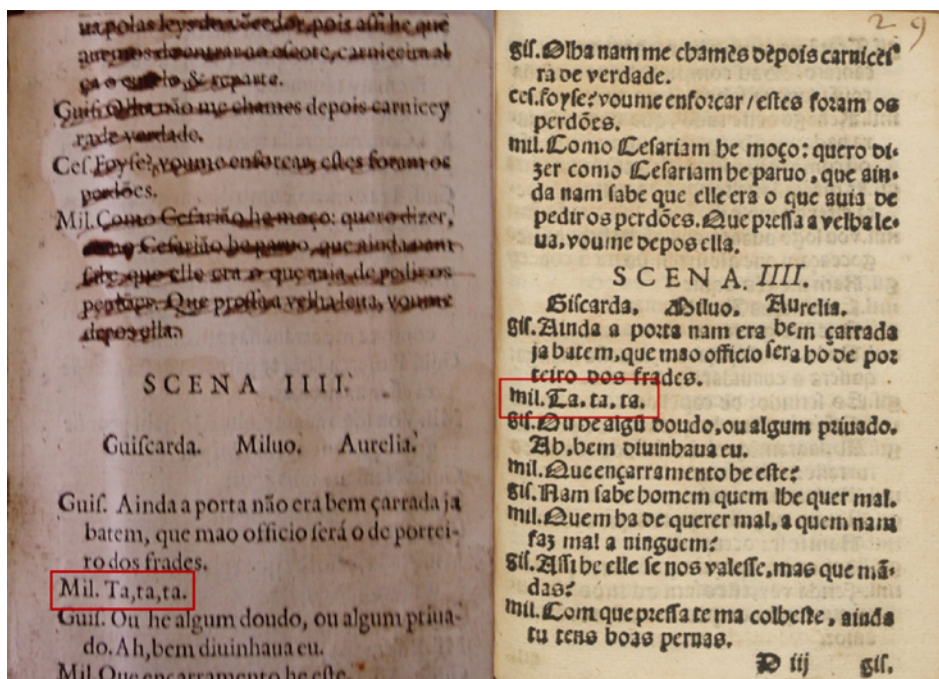 ua polas leys do vẽcedor, pois assi he que
queremos dentrar ao escote, carniceira al
ça o cutelo, & reparte.
Guis. Olha não me chames depois carnicey
ra de verdade.
Ces. Foyse? voume enforcar, estes foram os
perdões.
Mil. Como Cesarião he moço: quero dizer,
como Cesarião he paruo, que ainda nam
sabe que elle era o que auia de pedir os
perdões. Que pressa a velha leua, voume
depos ella.
SCENA IIII.
Guiscarda. Miluo. Aurelia.
Guis. Ainda a porta não era bem çarrada ja
batem, que mao officio será o de portei-
ro dos frades.
Mil. Ta, ta, ta.
Guis. Ou he algum doudo, ou algum priua-
do. Ah, bem diuinhaua eu.
Mil. Que encarramento he este.
29
gis. Olha nam me chames depois carnicei
ra de verdade.
ces. foyse? voume enforcar / estes foram os
perdões.
mil. Como Cesariam he moço: quero di-
zer como Cesariam he paruo, que ain-
da nam sabe que elle era o que auia de
pedir os perdões. Que pressa a velha le-
ua, voume depos ella.
SCENA. IIII.
Giscarda. Miluo. Aurelia.
gis. Ainda a porta nam era bem çarrada
ja batem, que mao officio sera ho de por
teiro dos frades.
mil. Ta. ta, ta.
gis. Ou he algũ doudo, ou algum priuado.
Ah, bem diuinhaua eu.
mil. Que ençarramento he este?
gis. Nam sabe homem quem lhe quer mal.
mil. Quem ha de querer mal, a quem nam
faz mal a ninguem?
gis. Assi he elle se nos valesse, mas que mã-
das?
mil. Com que pressa te ma colheste, ainda
tu tens boas pernas.
D iij gis.